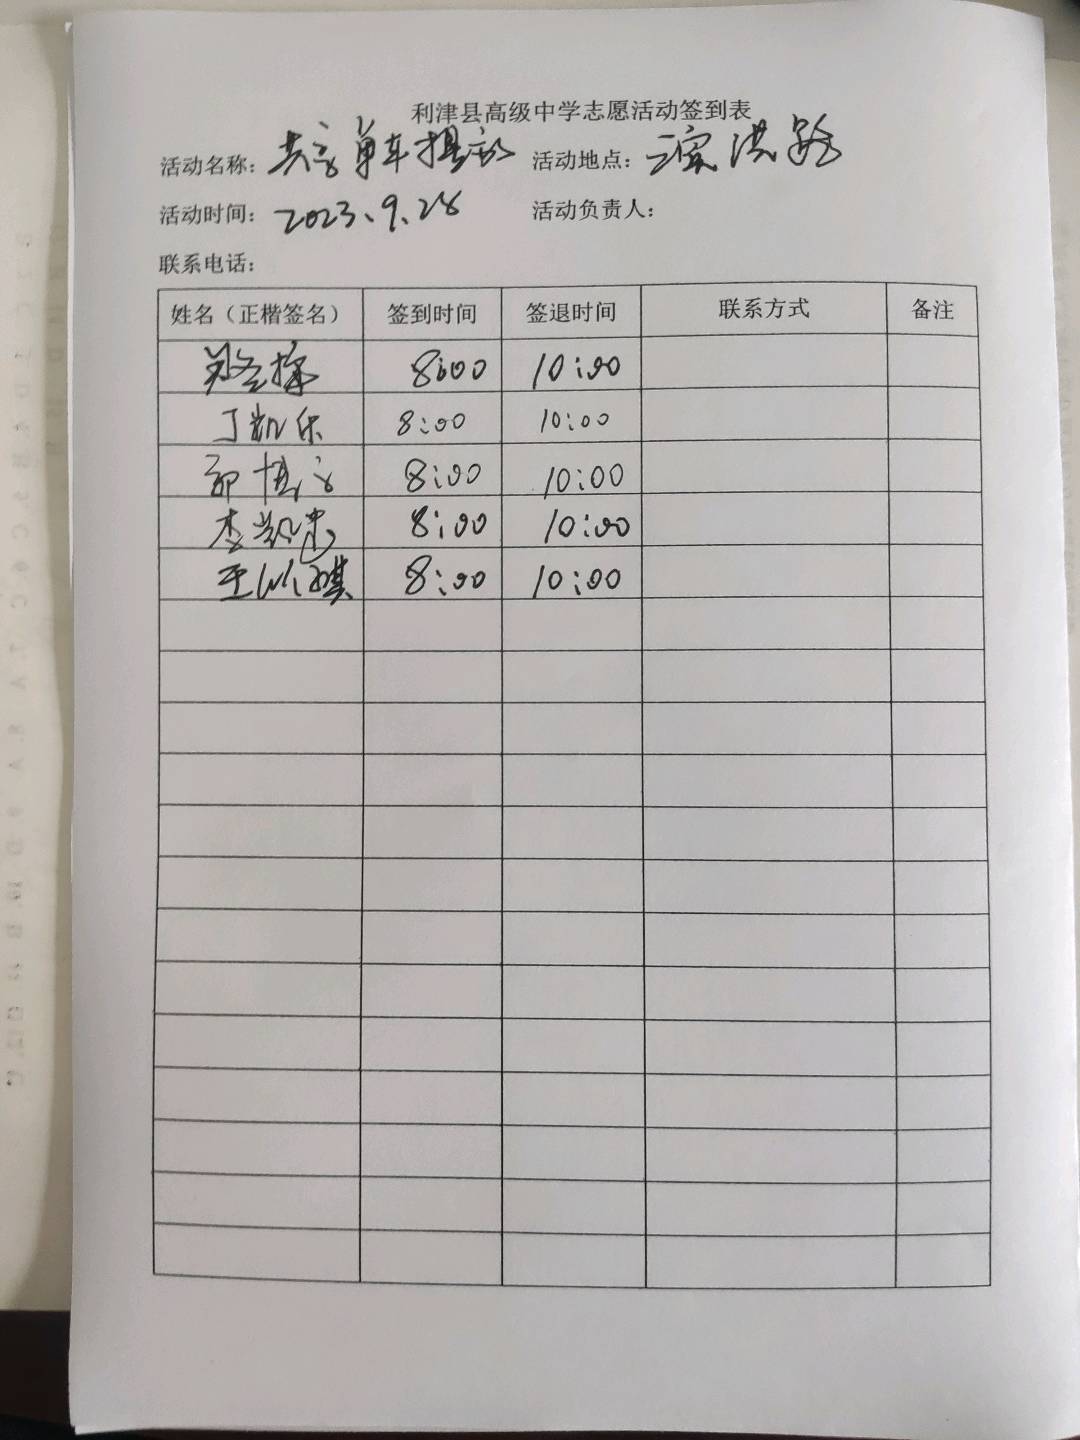 利津县高级中学志愿活动签到表
活动名称: 共享单车摆放 活动地点: 滨洪路
活动时间: 2023、9、28 活动负责人:
联系电话:
姓名（正楷签名） 签到时间 签退时间 联系方式 备注
8:00 10:00
丁凯乐 8:00 10:00
8:00 10:00
李凯 8:00 10:00
王 琪 8:00 10:00